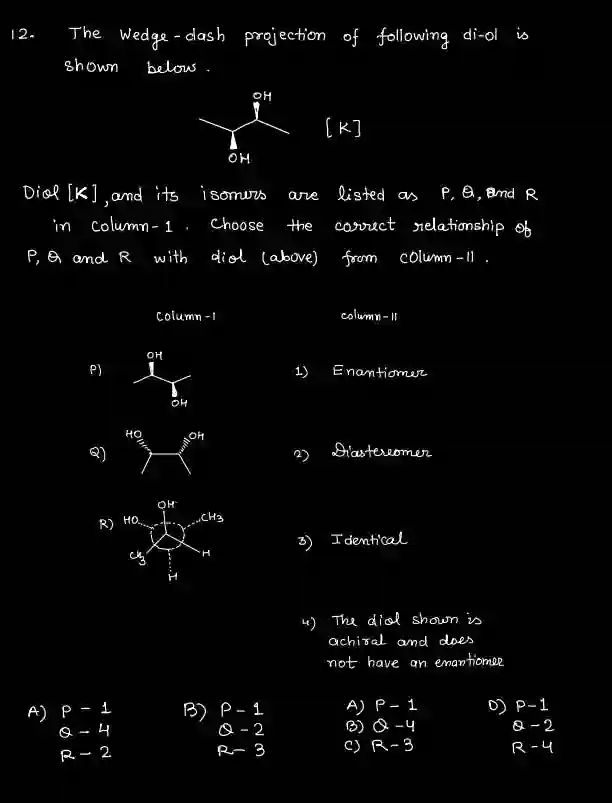 12. The Wedge-dash projection of following di-ol is
shown below.
OH
[K]
OH
Diol [K], and its isomers are listed as P, Q, and R
in column-1. Choose the correct relationship of
P, Q and R with diol (above) from column-II.
Column-I column-II
OH
P) 1) Enantiomer
OH
HO OH
Q) 2) Diastereomer
OH
R) HO CH3
3) Identical
CH3 H
H
4) The diol shown is
achiral and does
not have an enantiomer
A) P - 1 B) P - 1 A) P - 1 D) P-1
Q - 4 Q - 2 B) Q - 4 Q - 2
R - 2 R - 3 C) R - 3 R - 4